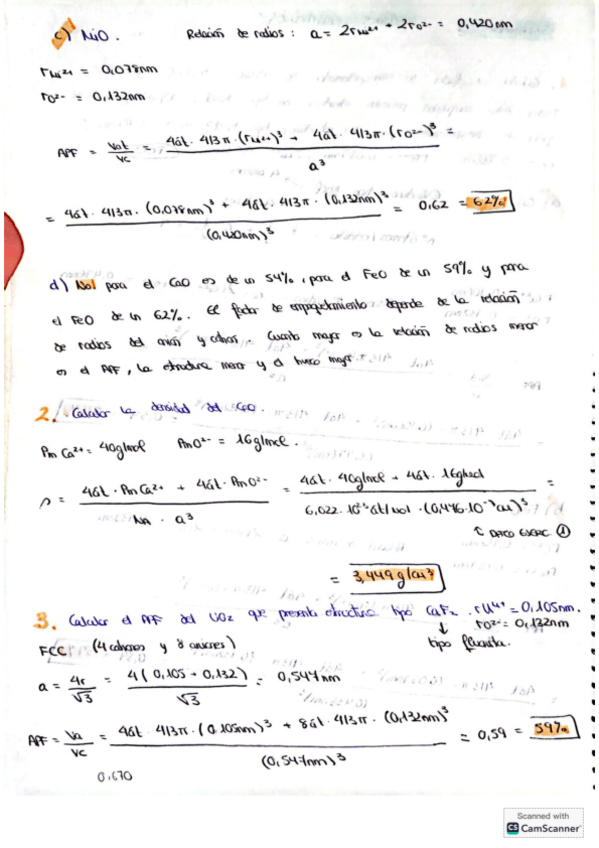 c) NiO. Relación de radios: a = 2rNi²⁺ + 2rO²⁻ = 0,420nm
rNi²⁺ = 0,078nm
rO²⁻ = 0,132nm
APF = Vat/Vc = 4át · 4/3π · (rNi²⁺)³ + 4át · 4/3π · (rO²⁻)³ / a³ =
= 4át · 4/3π · (0,078nm)³ + 4át · 4/3π · (0,132nm)³ / (0,420nm)³ = 0,62 = 62%
d) No! para el CaO es de un 54%, para el FeO de un 59% y para
el FeO de un 62%. El factor de empaquetamiento depende de la relación
de radios del anión y catión. Cuanto mayor es la relación de radios menor
es el APF, la estructura menor y el hueco mayor
2. Calcular la densidad del CaO.
PmCa²⁺ = 40g/mol PmO²⁻ = 16g/mol.
ρ = 4át · PmCa²⁺ + 4át · PmO²⁻ / NA · a³ = 4át · 40g/mol + 4át · 16g/mol / 6,022·10²³ át/mol · (0,476·10⁻⁷cm)³ =
↑ DATO EJERC. ①
= 3,449 g/cm³
3. Calcular el APF del UO₂ que presenta estructura tipo CaF₂. rU⁴⁺ = 0,105nm.
↓ rO²⁻ = 0,132nm
FCC (4 cationes y 8 aniones) tipo fluorita.
a = 4r/√3 = 4(0,105 + 0,132)/√3 = 0,547nm
APF = Va/Vc = 4át · 4/3π · (0,105nm)³ + 8át · 4/3π · (0,132nm)³ / (0,547nm)³ = 0,59 = 59%
0,670
Scanned with
CS CamScanner